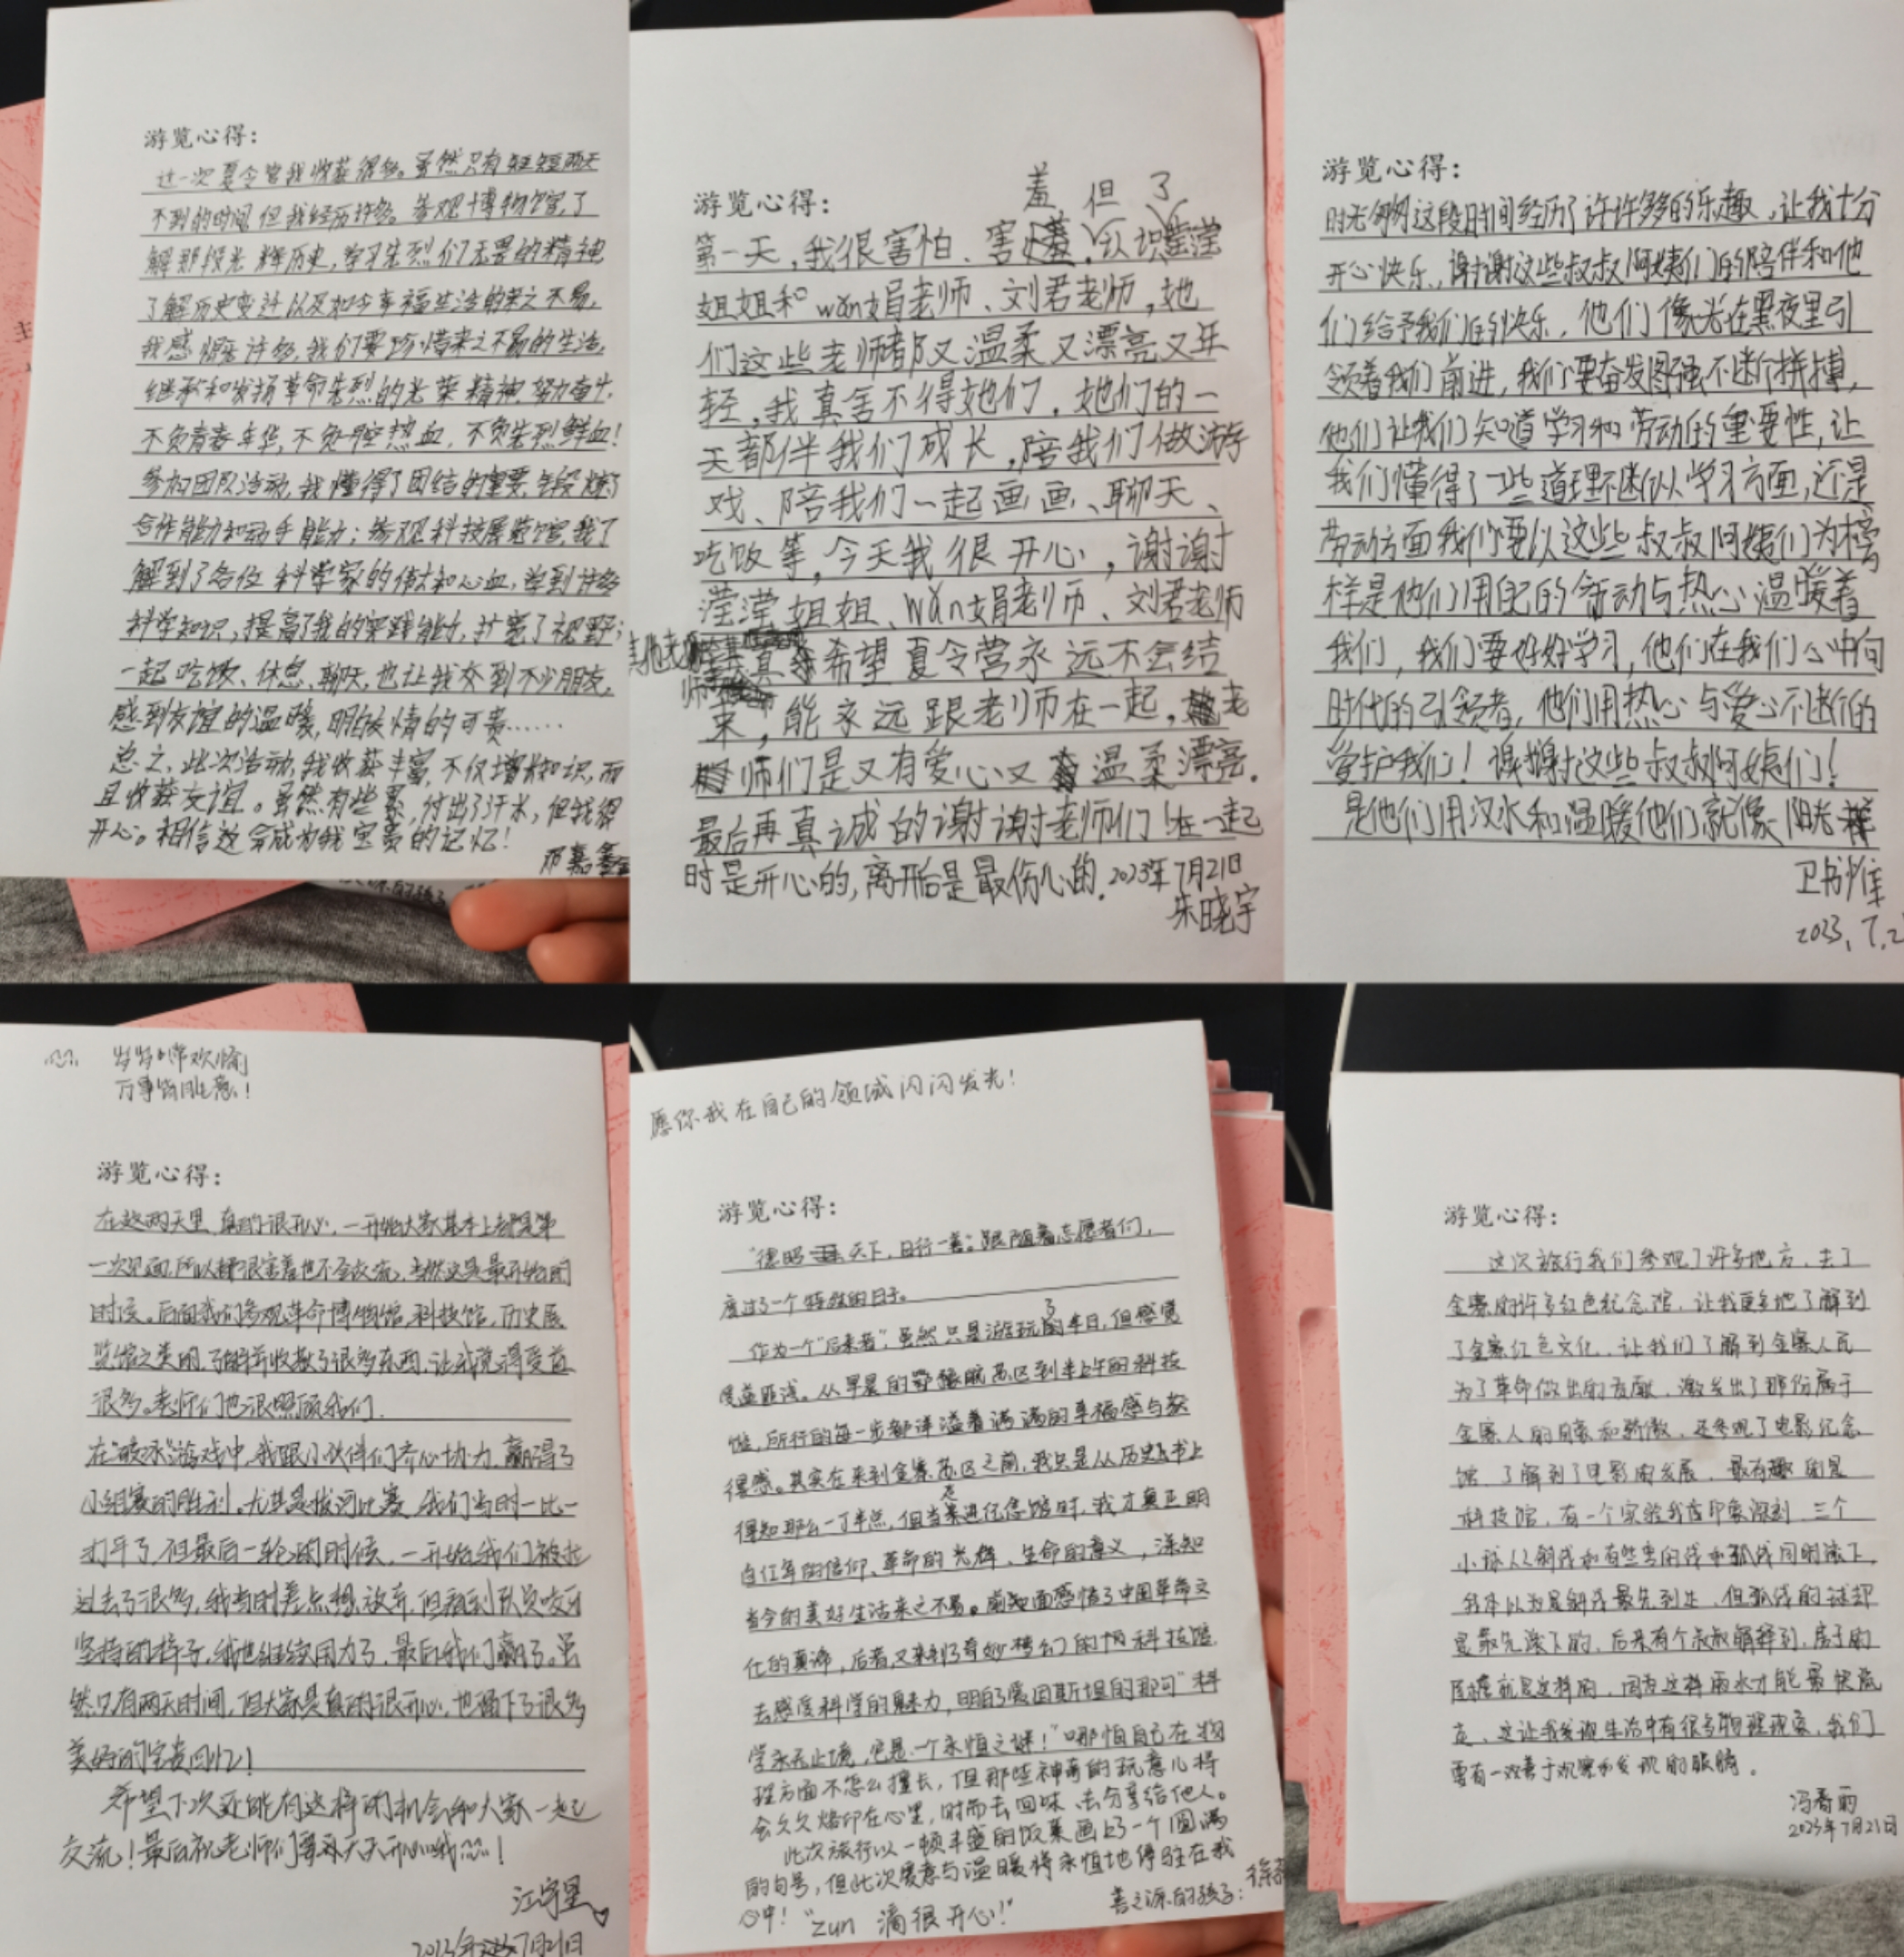 游览心得：
这一次夏令营我收获很多。虽然只有短短两天
不到的时间，但我经历许多。参观博物馆，了
解那段光辉历史，学习先烈们无畏的精神
了解历史变迁以及如今幸福生活的来之不易，
我感悟许多，我们要珍惜来之不易的生活，
继承和发扬革命先烈的光荣精神，努力奋斗，
不负青春年华，不负一腔热血，不负先烈鲜血！
参加团队活动，我懂得了团结的重要，锻炼了
合作能力和动手能力；参观科技展览馆，我了
解到了各位科学家的伟大和心血，学到许多
科学知识，提高了我的实践能力，扩宽了视野；
一起吃饭、休息、聊天，也让我交到不少朋友，
感到友谊的温暖，明白友情的可贵……
总之，此次活动，我收获丰富，不仅增长知识，而
且收获友谊。虽然有些累，付出了汗水，但我很
开心。相信这会成为我宝贵的记忆！
游览心得：
羞 但 了
第一天，我很害怕、害羞，认识滢滢
姐姐和wǎn娟老师、刘君老师，她
们这些老师都又温柔又漂亮又年
轻，我真舍不得她们，她们的一
天都伴我们成长，陪我们做游
戏、陪我们一起画画、聊天、
吃饭等，今天我很开心，谢谢
滢滢姐姐、wǎn娟老师、刘君老师
其他老师真希望夏令营永远不会结
束，能永远跟老师在一起，老
师们是又有爱心又温柔漂亮.
最后再真诚的谢谢老师们！在一起
时是开心的，离开后是最伤心的.2023年7月21日
朱晓宇
游览心得：
时光匆匆这段时间经历了许许多多的乐趣，让我十分
开心快乐，谢谢这些叔叔阿姨们的陪伴和他
们给予我们的快乐，他们像光在黑夜里引
领着我们前进，我们要奋发图强不断拼搏，
他们让我们知道学习和劳动的重要性，让
我们懂得了一些道理不论学习方面，还是
劳动方面我们要以这些叔叔阿姨们为榜
样是他们用自己的劳动与热心温暖着
我们，我们要好好学习，他们在我们心中向
时代的引领者，他们用热心与爱心不断的
爱护我们！谢谢这些叔叔阿姨们！
是他们用汉水和温暖他们就像阳光样
2023，7.2
岁岁常欢愉
万事皆胜意！
游览心得：
在这两天里，真的很开心，一开始大家基本上都是第
一次见面，所以都很害羞也不至交流，当然这是最开始的
时候。后面我们参观革命博物馆，科技馆，历史展
览馆之类的，了解并收获了很多东西，让我觉得受益
很多。老师们也很照顾我们.
在"破冰"游戏中，我跟小伙伴们齐心协力，赢得了
小组赛的胜利。尤其是拔河比赛，我们当时一比一
打平了，但最后一轮的时候，一开始我们被拉
过去了很多，我当时差点想放弃，但看到队员咬牙
坚持的样子，我也继续用力了，最后我们赢了。虽
然只有两天时间，但大家是真的很开心，也留下了很多
美好的宝贵回忆！
希望下次还能有这样的机会和大家一起
交流！最后祝老师们每天天天开心哦！
2023年7月21日
愿你我在自己的领域闪闪发光！
游览心得：
"德昭天下，日行一善"跟随着志愿者们，
度过了一个特殊的日子。
作为一个"后来者"，虽然只是游玩了半日，但感觉
受益匪浅。从早晨的鄂豫皖苏区到半上午的科技
馆，所行的每一步都洋溢着满满的幸福感与获
得感。其实在来到金寨苏区之前，我只是从历史书上
得知那么一丁半点，但当走进纪念馆时，我才真正明
白往年的信仰、革命的光辉、生命的意义，深知
当今的美好生活来之不易。前面感悟了中国革命文
化的真谛，后者又来到了奇妙梦幻的科技馆，
去感受科学的魅力，明白了爱因斯坦的那句"科
学永无止境，它是一个永恒之谜！"哪怕自己在物
理方面不怎么擅长，但那些神奇的玩意儿将
会久久烙印在心里，时而去回味、去分享给他人。
此次旅行以一顿丰盛的饭菜画上了一个圆满
的句号，但此次爱意与温暖将永恒地停驻在我
心中！"zun 滴很开心！"
善之源的孩子：
游览心得：
这次旅行我们参观了许多地方，去了
金寨的许多红色纪念馆，让我更多地了解到
了金寨红色文化，让我们了解到金寨人民
为了革命做出的贡献，激发出了那份属于
金寨人的自豪和骄傲，还参观了电影纪念
馆，了解到了电影的发展，最有趣的是
科技馆，有一个实验我感印象深刻，三个
小球从斜线和有些弯的线和弧线同时滚下，
我本以为是斜线最先到达，但弧线的球却
是最先滚下的，后来有个叔叔解释到，房子的
屋檐就是这样的，因为这样雨水才能最快流
走，这让我发现生活中有很多物理现象，我们
要有一双善于观察和发现的眼睛。
冯春雨
2023年7月21日